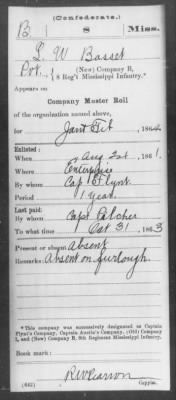 (Confederate.)
B 8 Miss.
L W Basset
Pvt., { (New) Company B,
8 Reg't Mississippi Infantry.*
Appears on
Company Muster Roll
of the organization named above,
for Jan & Feb, 1864.
Enlisted:
When Aug 2st, 1861.
Where Enterprise
By whom Cap Flynt
Period 1 year.
Last paid:
By whom Capt Pilcher
To what time Oct 31, 1863
Present or absent Absent
Remarks: Absent on furlough.
*This company was successively designated as Captain
Flynt's Company, Captain Austin's Company, (Old) Company
I, and (New) Company B, 8th Regiment Mississippi Infantry.
Book mark:
(642) Copyist.